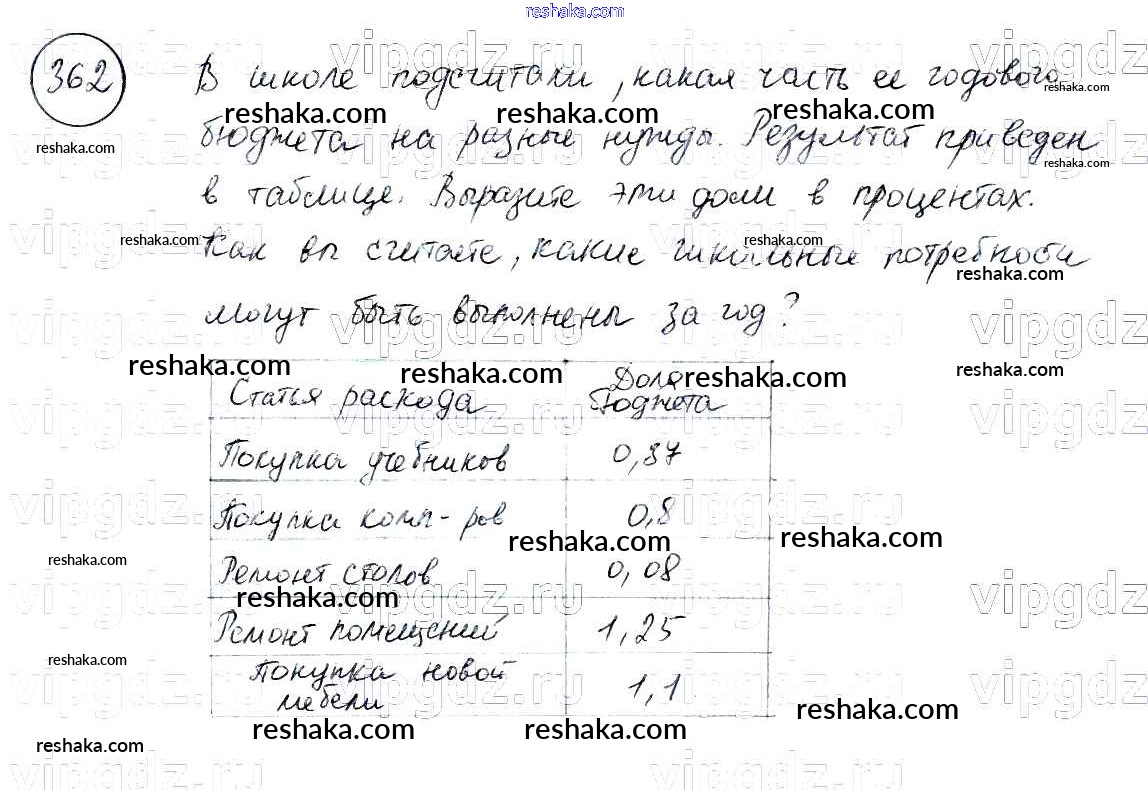 reshaka.com
362
В школе подсчитали, какая часть ее годового
бюджета на разные нужды. Результат приведен
в таблице. Выразите эти доли в процентах.
Как вы считаете, какие школьные потребности
могут быть выполнены за год?
Статья расхода Доля бюджета
Покупка учебников 0,37
Покупка комп-ров 0,8
Ремонт столов 0,08
Ремонт помещений 1,25
Покупка новой мебели 1,1
reshaka.com
vipgdz.ru